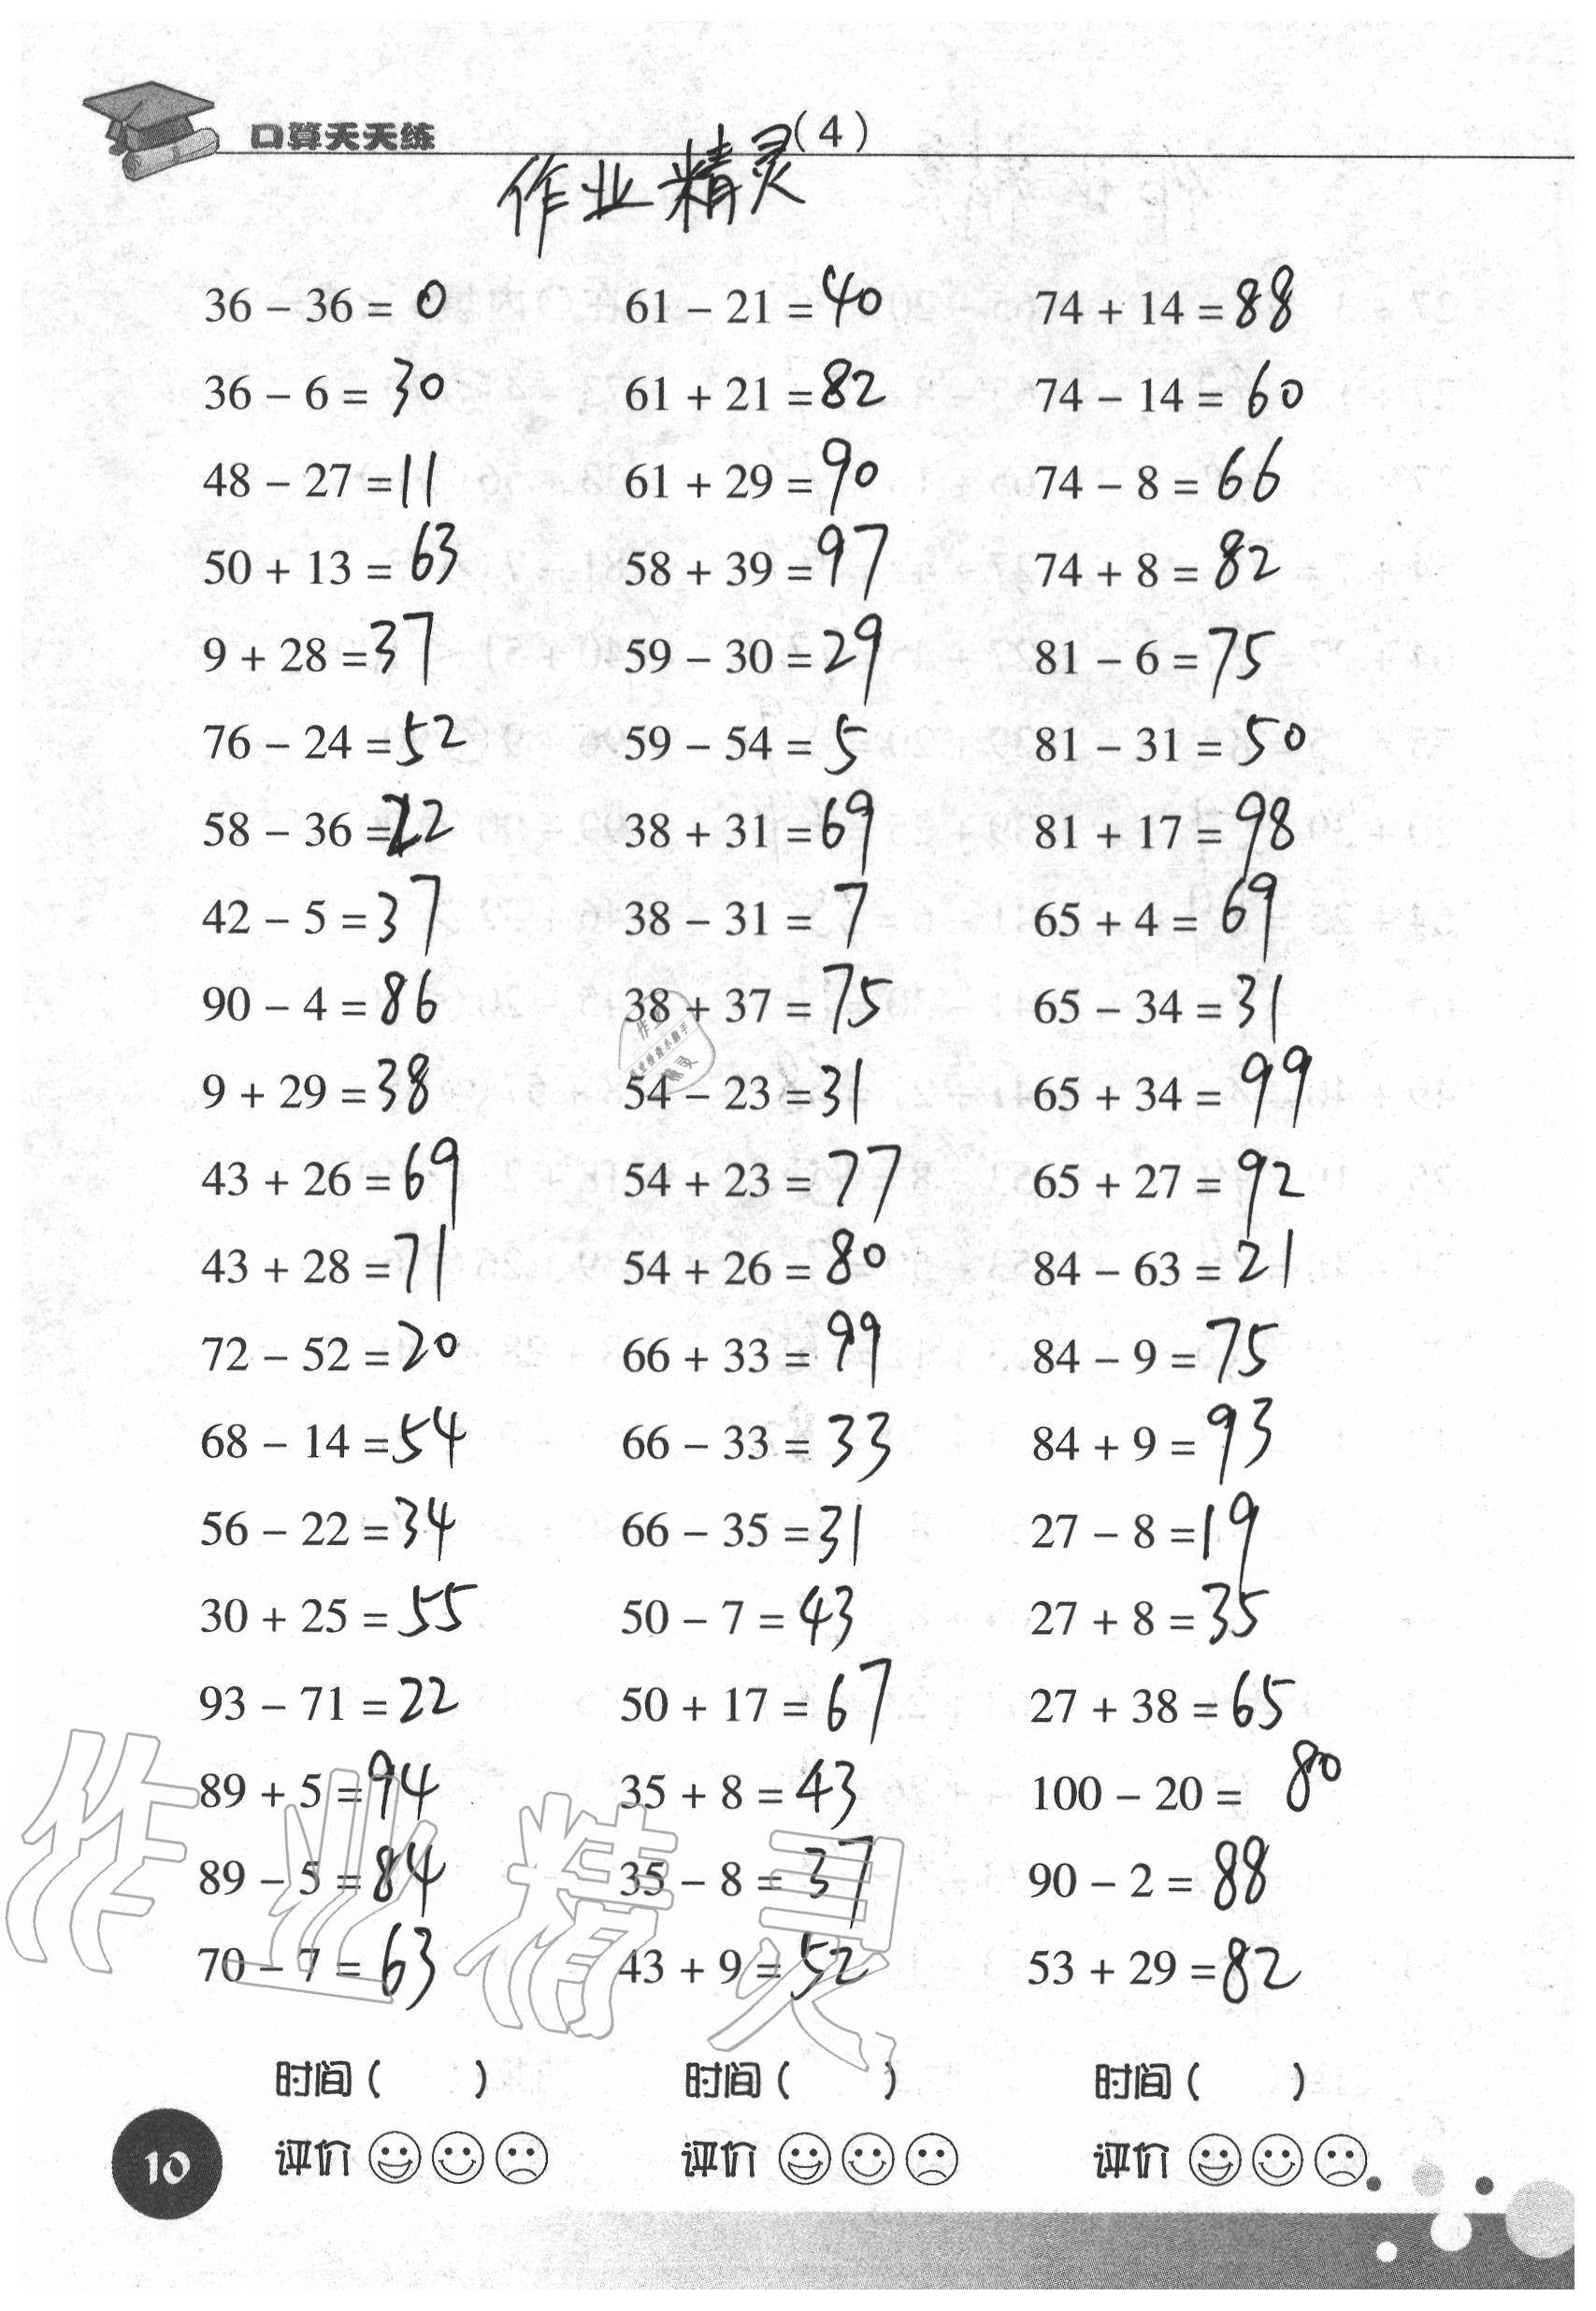 口算天天练 (4)
作业精灵
36 − 36 = 0 61 − 21 = 40 74 + 14 = 88
36 − 6 = 30 61 + 21 = 82 74 − 14 = 60
48 − 27 = 11 61 + 29 = 90 74 − 8 = 66
50 + 13 = 63 58 + 39 = 97 74 + 8 = 82
9 + 28 = 37 59 − 30 = 29 81 − 6 = 75
76 − 24 = 52 59 − 54 = 5 81 − 31 = 50
58 − 36 = 22 38 + 31 = 69 81 + 17 = 98
42 − 5 = 37 38 − 31 = 7 65 + 4 = 69
90 − 4 = 86 38 + 37 = 75 65 − 34 = 31
9 + 29 = 38 54 − 23 = 31 65 + 34 = 99
43 + 26 = 69 54 + 23 = 77 65 + 27 = 92
43 + 28 = 71 54 + 26 = 80 84 − 63 = 21
72 − 52 = 20 66 + 33 = 99 84 − 9 = 75
68 − 14 = 54 66 − 33 = 33 84 + 9 = 93
56 − 22 = 34 66 − 35 = 31 27 − 8 = 19
30 + 25 = 55 50 − 7 = 43 27 + 8 = 35
93 − 71 = 22 50 + 17 = 67 27 + 38 = 65
89 + 5 = 94 35 + 8 = 43 100 − 20 = 80
89 − 5 = 84 35 − 8 = 37 90 − 2 = 88
70 − 7 = 63 43 + 9 = 52 53 + 29 = 82
作业精灵
时间 ( ) 时间 ( ) 时间 ( )
评价 评价 评价
10